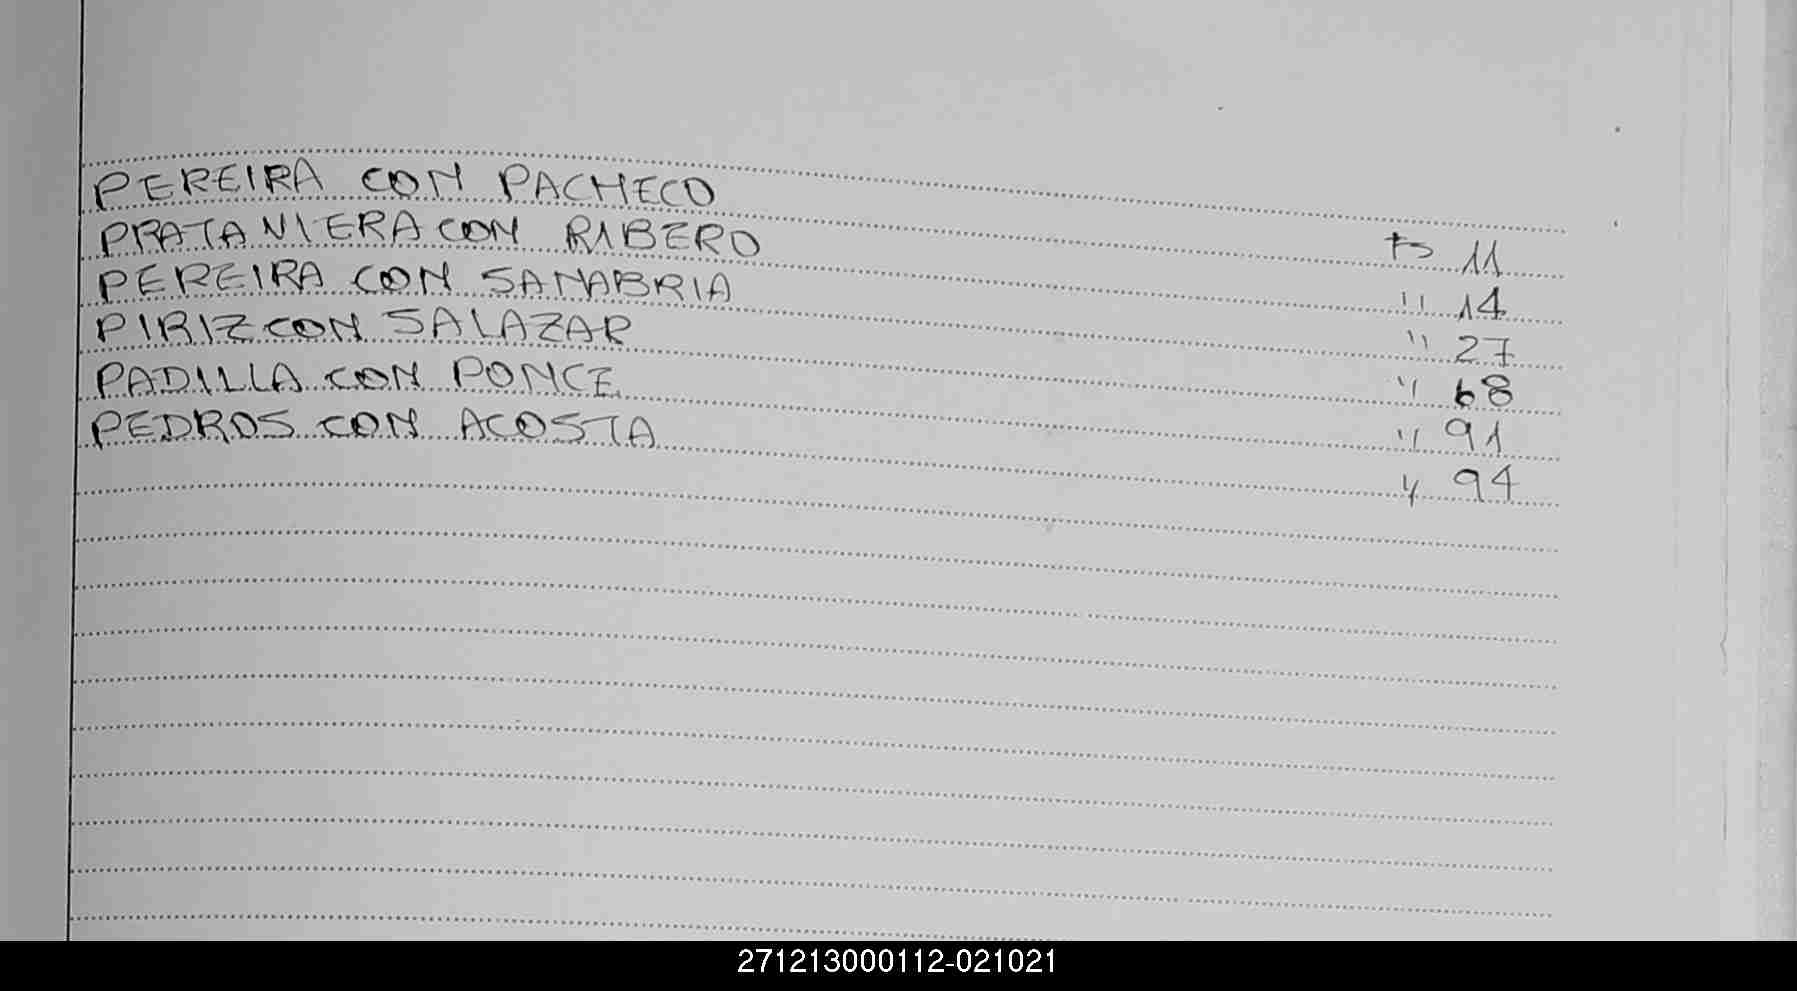 PEREIRA CON PACHECO Fs 11
PRATAVIERA CON RIBERO " 14
PEREIRA CON SANABRIA " 27
PIRIZ CON SALAZAR " 68
PADILLA CON PONCE " 91
PEDROS CON ACOSTA " 94
271213000112-021021